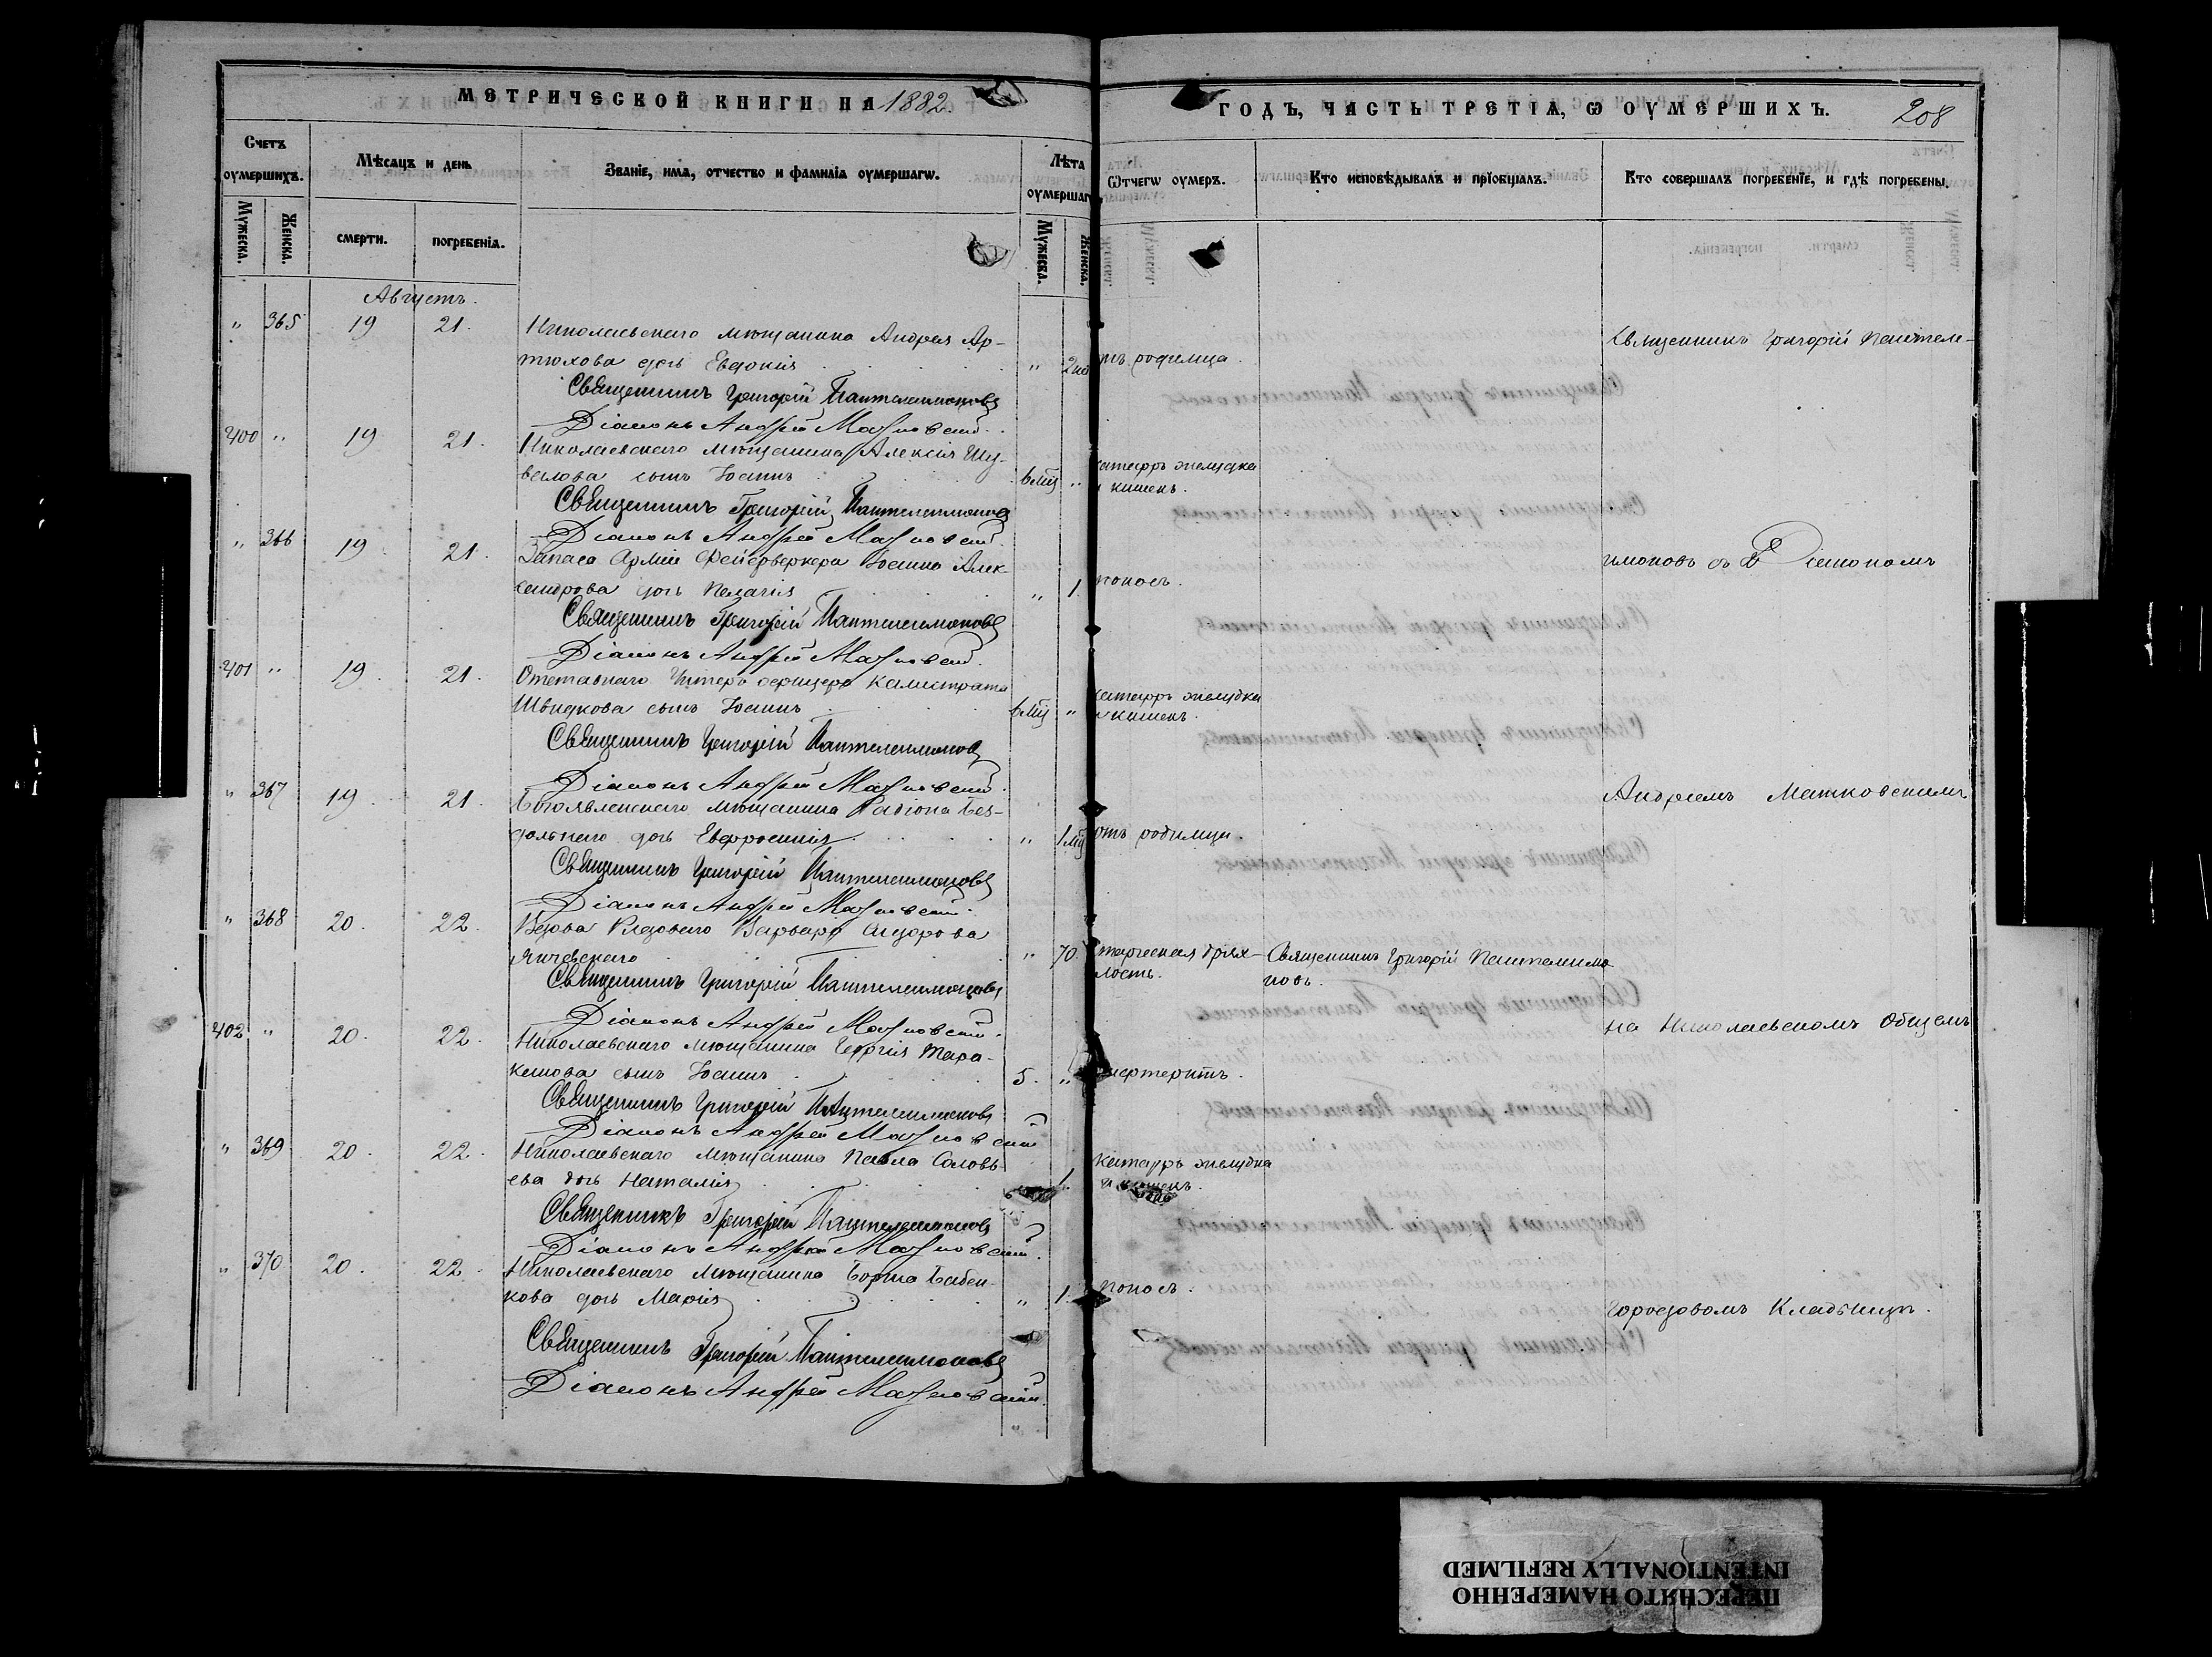 МЕТРИЧЕСКОЙ КНИГИ НА 1882.
ГОДЪ, ЧАСТЬ ТРЕТІѦ, Ѡ ОУМЕРШИХЪ.
208
Счетъ оумершихъ.
Мѣсѧцъ и день
Званіе, имѧ, отчество и фамиліѧ оумершагѡ.
Лѣта оумершаг
Ѿтчегѡ оумеръ.
Кто исповѣдывалъ и прїобщалъ.
Кто совершалъ погребенїе, и гдѣ погребены.
Мꙋжеска.
Женска.
смерти.
погребеніѧ.
Мꙋжеска.
Женска.
Августъ.
" 365 19 21. Николаевскаго мѣщанина Андрея Ар-
тюхова дочь Евдокія " 2 тъ родимца.
Священникъ Григорій Пантеле-
Священникъ Григорій Пантелеимоновъ
Діаконъ Андрей Матковскій.
400 " 19 21. Николаевскаго мѣщанина Алексія Шу-
валова сынъ Іоаннъ 6 мц " атарръ желудка
кишекъ.
Священникъ Григорій Пантелеимоновъ
Діаконъ Андрей Матковскій.
" 366 19. 21. Запаса Арміи Фейерверкера Іоанна Алек-
сандрова дочь Пелагія " 1. поносъ.
имоновъ съ Діакономъ
Священникъ Григорій Пантелеимоновъ
Діаконъ Андрей Матковскій.
401 " 19. 21. Отставнаго Унтеръ офицера Калистрата
Швидкова сынъ Іоаннъ 6 мц " катарръ желудка
и кишекъ.
Священникъ Григорій Пантелеимоновъ
Діаконъ Андрей Матковскій.
" 367 19. 21. Богоявленскаго мѣщанина Радіона Без-
дольнаго дочь Евфросинія " 1 мц отъ родимца.
Андреемъ Матковскимъ
Священникъ Григорій Пантелеимоновъ
Діаконъ Андрей Матковскій.
" 368 20. 22. Вдова Рядоваго Варвара Сидорова
" 70. старческая дрях-
лость.
Священникъ Григорій Пантелеимо-
новъ.
Священникъ Григорій Пантелеимоновъ
Діаконъ Андрей Матковскій.
402 " 20. 22. Николаевскаго мѣщанина Георгія Тара-
канова сынъ Іоаннъ 5. " дифтеритъ.
на Николаевскомъ Общемъ
Священникъ Григорій Пантелеимоновъ
Діаконъ Андрей Матковскій
" 369 20. 22. Николаевскаго мѣщанина Павла Соловь-
ева дочь Наталія 1. катарръ желудка
и кишекъ.
Священникъ Григорій Пантелеимоновъ
Діаконъ Андрей Матковскій.
" 370 20. 22. Николаевскаго мѣщанина Бориса Бабен-
кова дочь Марія " 1. поносъ.
городовомъ Кладбищѣ.
Священникъ Григорій Пантелеимоновъ
Діаконъ Андрей Матковскій.
ПЕРЕСНЯТО НАМЕРЕННО
INTENTIONALLY REFILMED